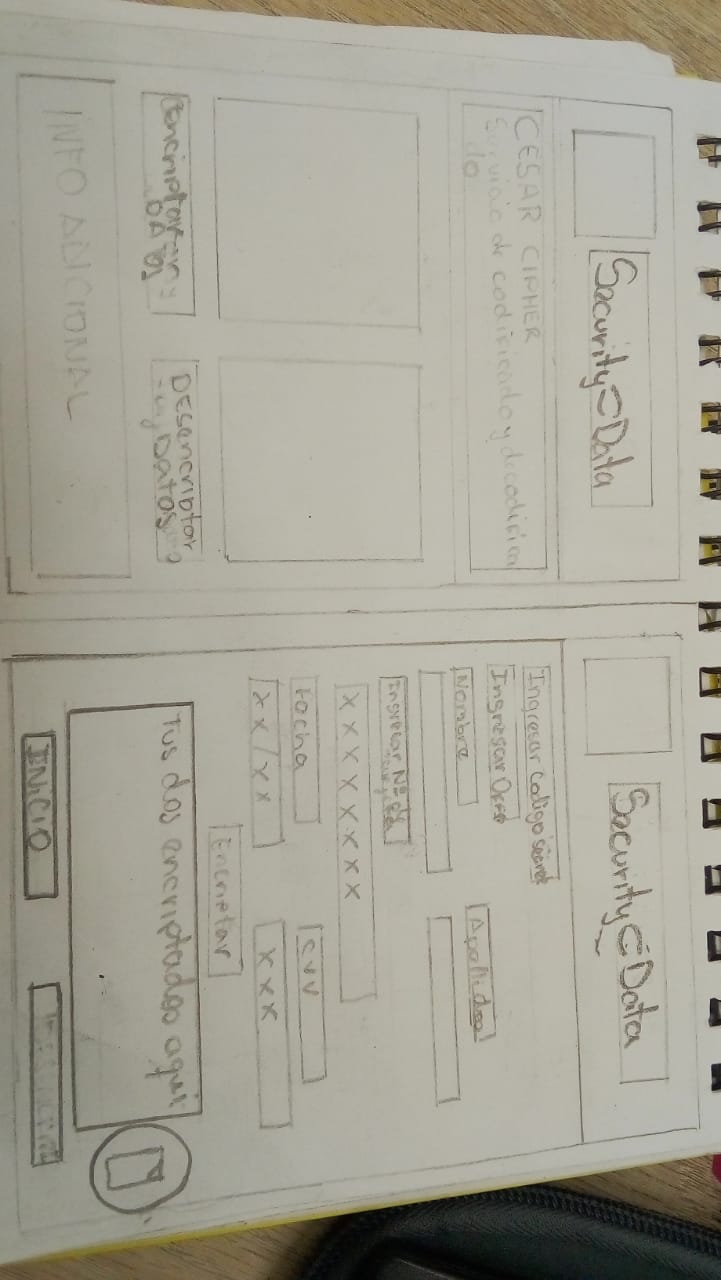 Security=Data
CESAR CIPHER
Servicio de codificado y decodifica
do
Encriptar
DATOS
DESencriptar
DATOS
INFO ADICIONAL
Security=Data
Ingresar codigo secret
Ingresar Offs
Nombre
Apellidos
Ingresar Nº de
XXXXXXXX
Fecha
CVV
XX/XX
XXX
Encriptar
Tus dos encriptados aqui
INICIO